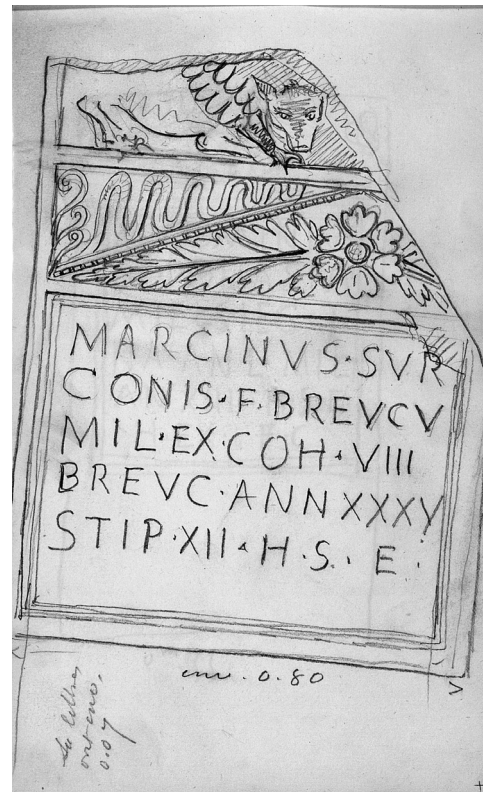 MARCINVS·SVR
CONIS·F·BREVCV
MIL·EX·COH·VIII
BREVC·ANNXXXV
STIP·XII·H·S·E·
env. 0.80
Les lettres
ont env.
0.07